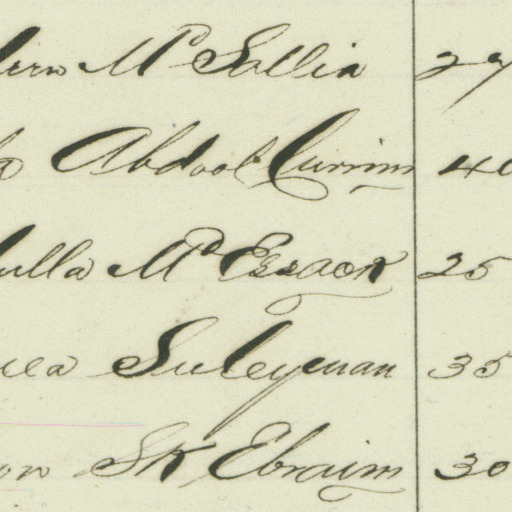 Md Sallia 27
Abdool Currim 40
ulla Md Essack 25
Suleyman 35
Sk Ebraim 30